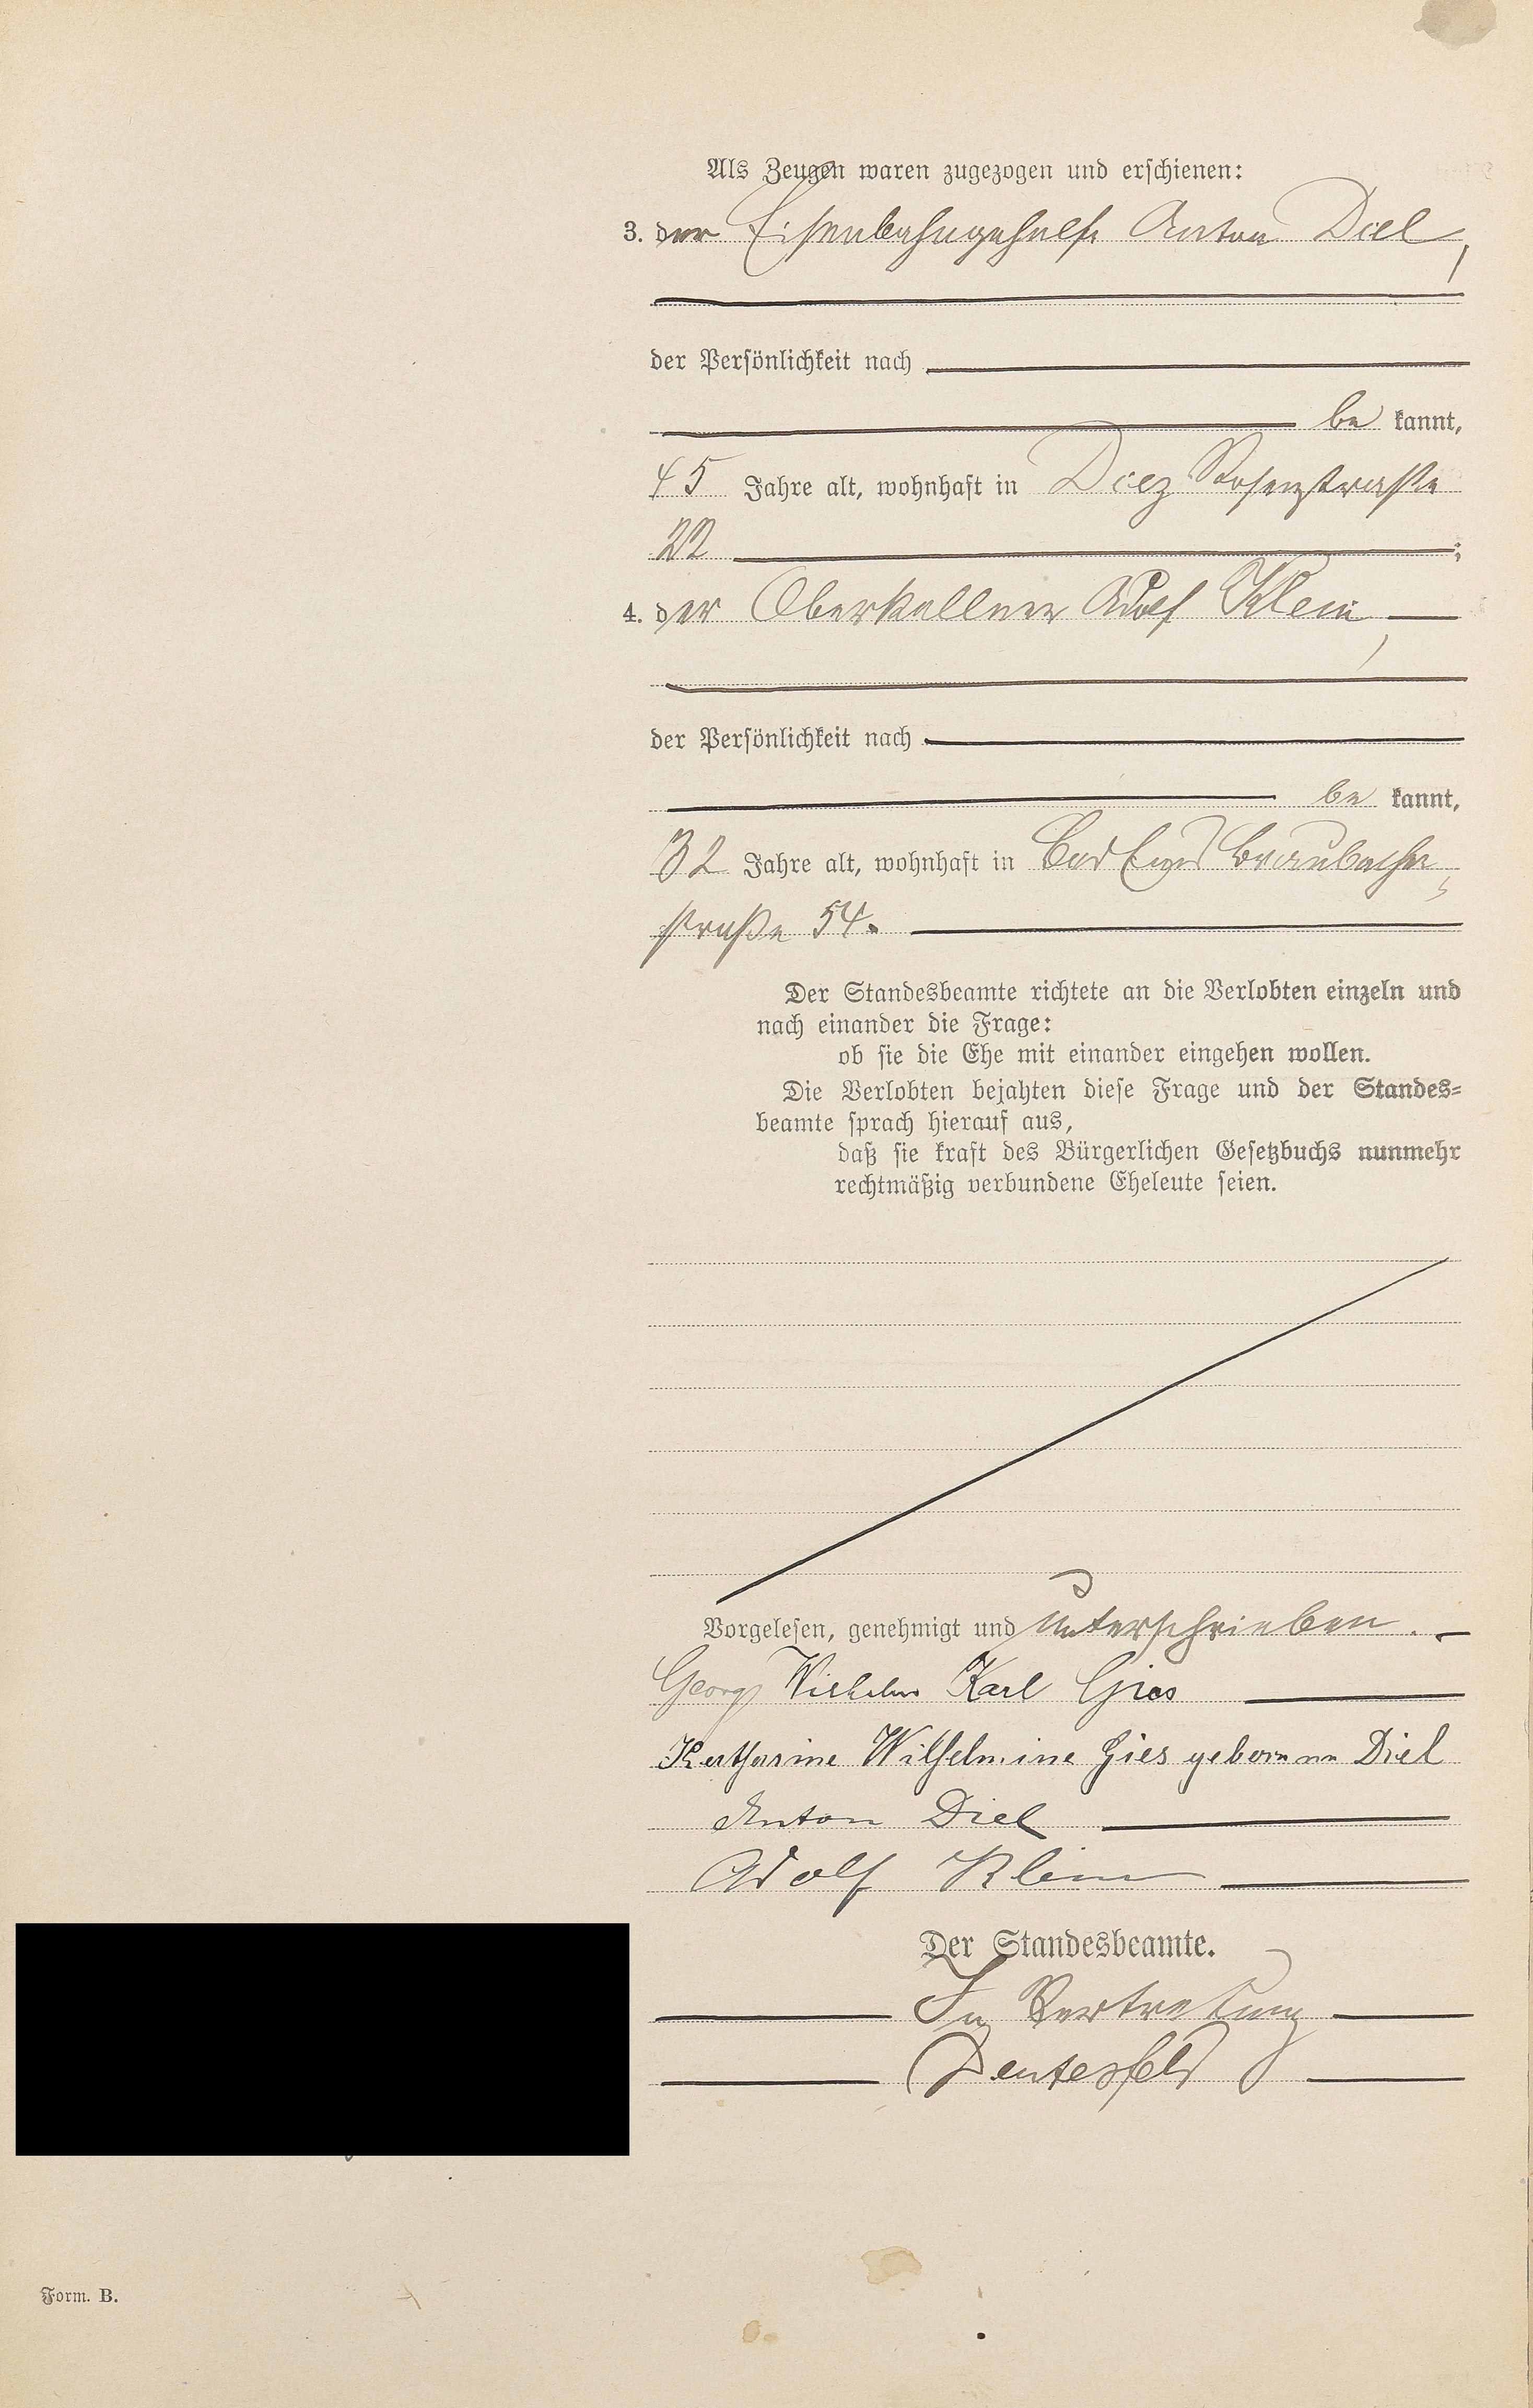 Als Zeugen waren zugezogen und erschienen:
3. der Eisenbahngehülfe Anton Diel,
der Persönlichkeit nach
be kannt,
45 Jahre alt, wohnhaft in Diez Rosenstrasse
22 ;
4. der Oberkellner Adolf Klein,
der Persönlichkeit nach
be kannt,
32 Jahre alt, wohnhaft in Bad Ems Braubacher
straße 54.
Der Standesbeamte richtete an die Verlobten einzeln und
nach einander die Frage:
ob sie die Ehe mit einander eingehen wollen.
Die Verlobten bejahten diese Frage und der Standes-
beamte sprach hierauf aus,
daß sie kraft des Bürgerlichen Gesetzbuchs nunmehr
rechtmäßig verbundene Eheleute seien.
Vorgelesen, genehmigt und unterschrieben.
Georg Wilhelm Karl Gies
Katharine Wilhelmine Gies geborene Diel
Anton Diel
Adolf Klein
Der Standesbeamte.
In Vertretung
Deutesfeld
Form. B.